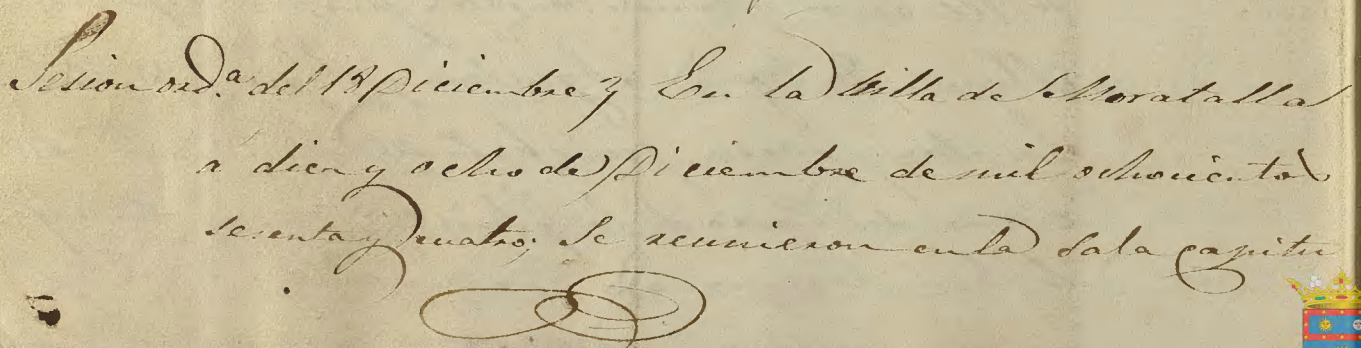 Sesion ord.ª del 18 Diciembre } En la Villa de Moratalla
á diez y ocho de Diciembre de mil ochocientos
sesenta y cuatro; Se reunieron en la Sala capitu